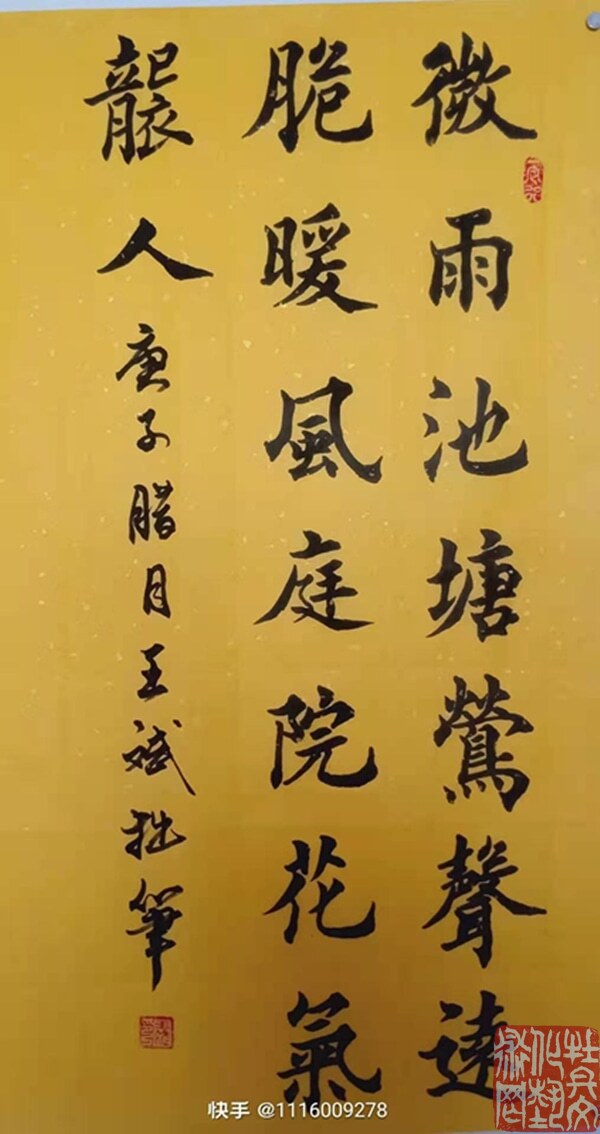 微雨池塘鶯聲遠
脆暖風庭院花氣
襲人
庚子腊月王斌拙筆
快手 @1116009278